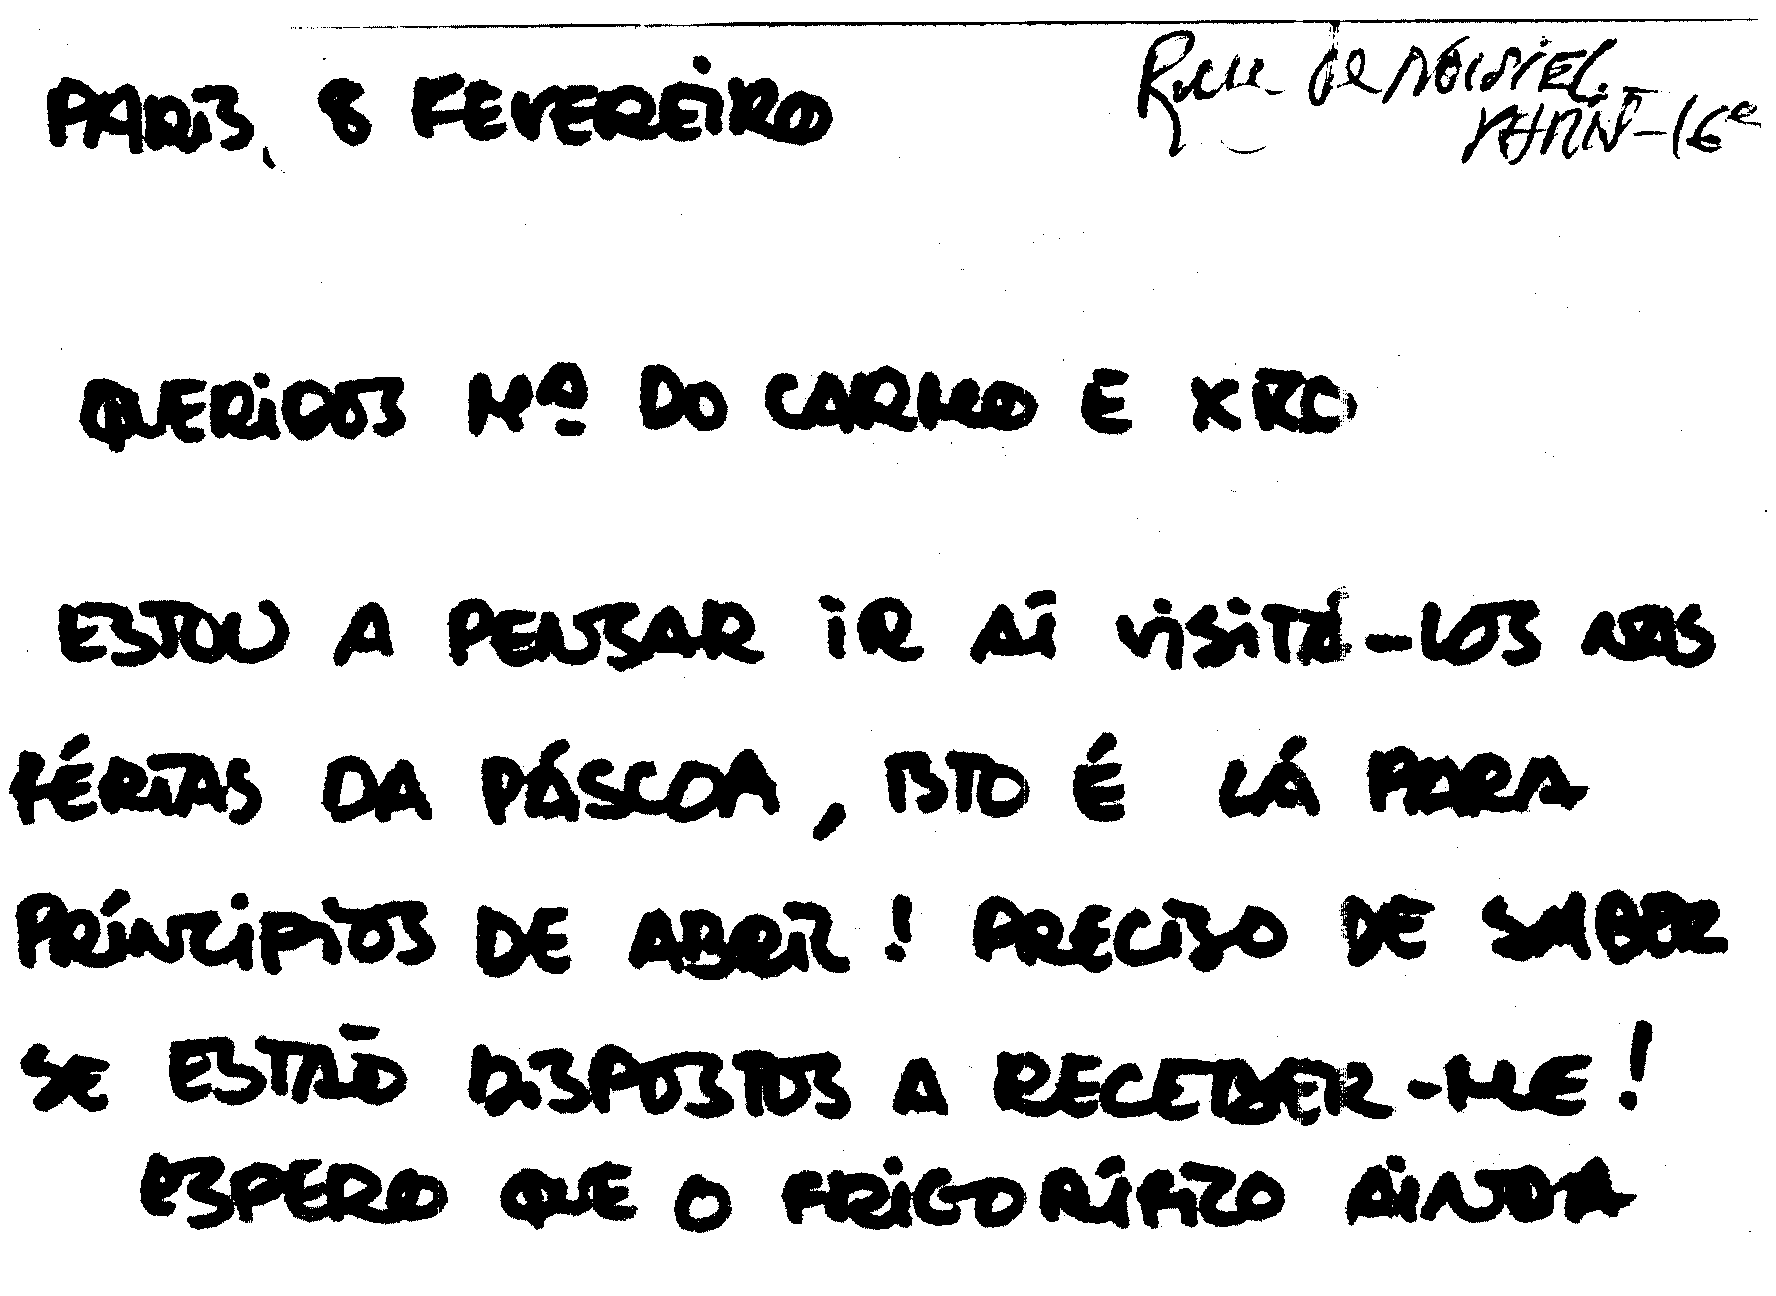 Rue de Noisiel
PARIS, 8 FEVEREIRO
PARIS-16e
QUERIDOS Mª DO CARMO E XRO
ESTOU A PENSAR IR AÍ VISITÁ-LOS NAS
FÉRIAS DA PÁSCOA, ISTO É LÁ PARA
PRÍNCIPIOS DE ABRIL! PRECISO DE SABER
SE ESTÃO DISPOSTOS A RECEBER-ME!
ESPERO QUE O FRIGORÍFICO AINDA